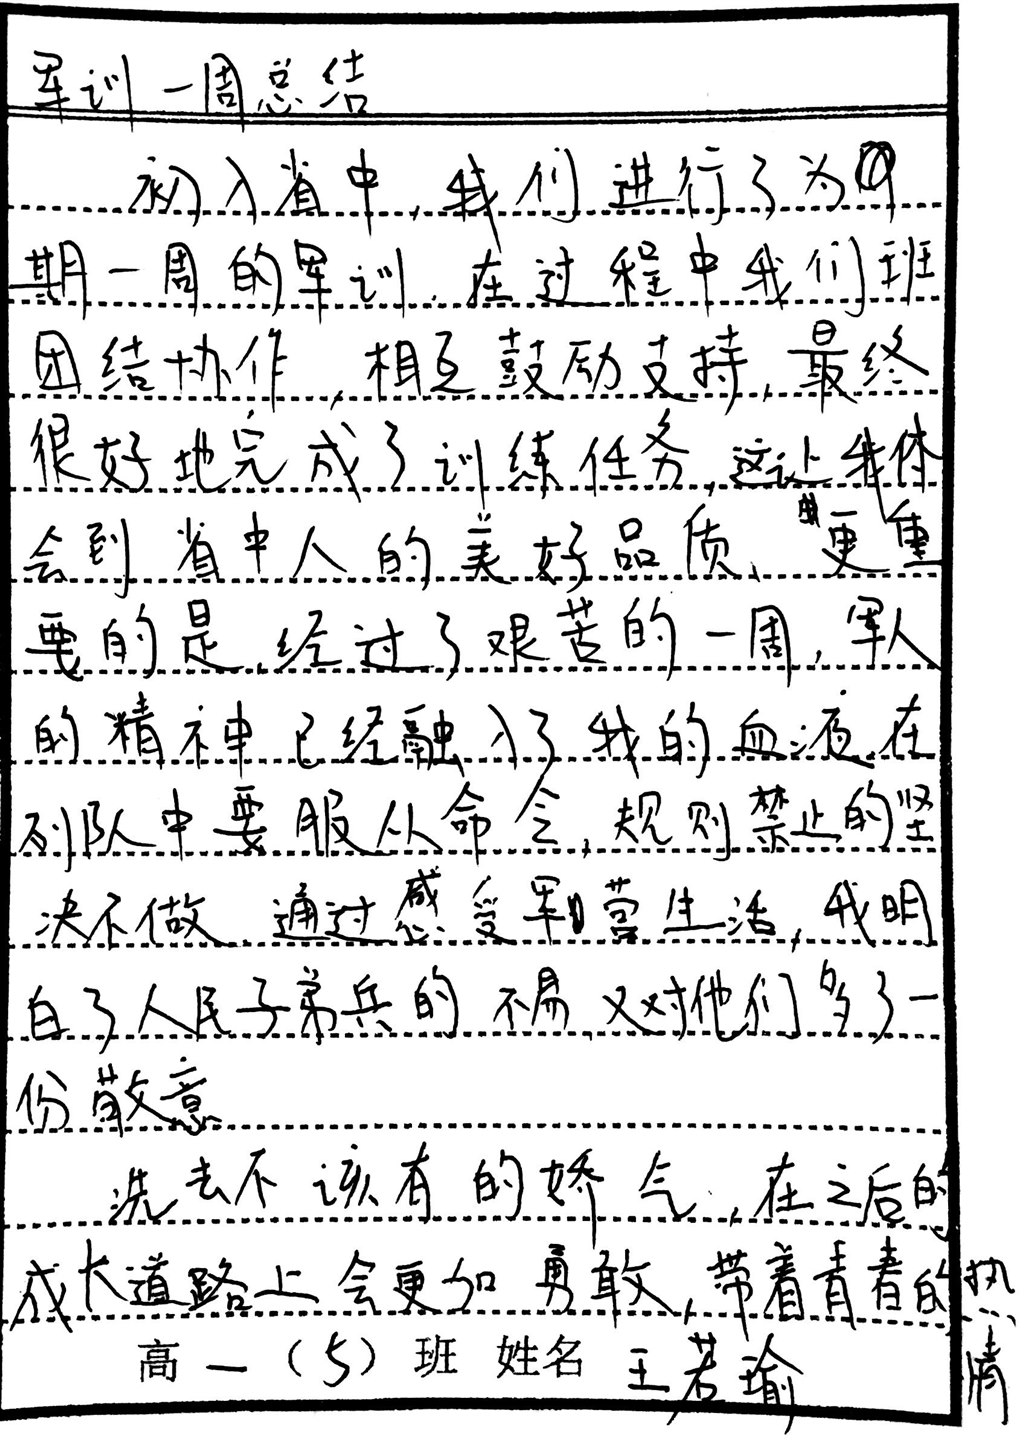 军训一周总结
初入省中,我们进行了为
期一周的军训.在过程中我们班
团结协作,相互鼓励支持,最终
很好地完成了训练任务,这让我体
会到省中人的美好品质、更重
要的是,经过了艰苦的一周,军人
的精神已经融入了我的血液.在
列队中要服从命令,规则禁止的坚
决不做.通过感受军营生活,我明
白了人民子弟兵的不易又对他们多了一
份敬意
洗去不该有的娇气,在之后的
成长道路上会更加勇敢,带着青春的热情
高一(5)班 姓名 王若瑜